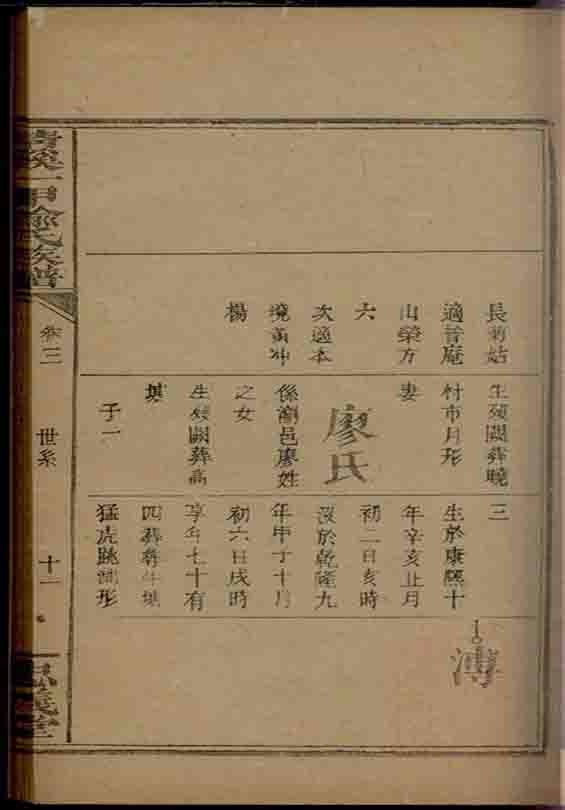 長菊姑
適普庵
山榮方
六
次適本
境黃冲
楊
生歿闕葬曉
村市月形
妻
廖氏
係瀏邑廖姓
之女
生歿闕葬高
子一
三
生於康熙十
年辛亥月
初二日亥時
沒於乾隆九
年甲子十月
初六日戌時
享年七十有
四葬牛
猛虎跳澗形
溥
溪一甲俞氏族譜
卷三
世系
十一
義堂